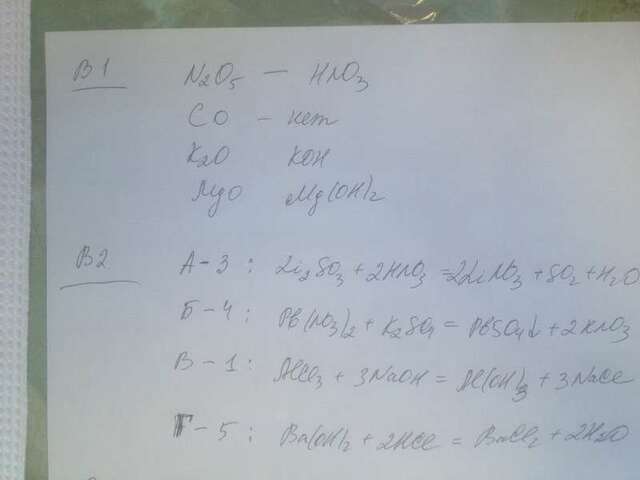 В1 N2O5 — HNO3
CO - нет
K2O KOH
MgO Mg(OH)2
В2 А-3 : Li2SO3 + 2HNO3 = 2LiNO3 + SO2 + H2O
Б-4 : Pb(NO3)2 + K2SO4 = PbSO4↓ + 2KNO3
В-1 : AlCl3 + 3NaOH = Al(OH)3 + 3NaCl
Г-5 : Ba(OH)2 + 2HCl = BaCl2 + 2H2O